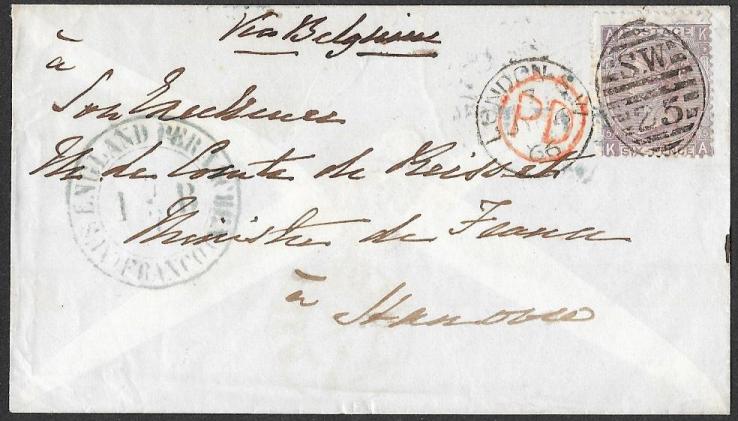 Via Belgium
à
Son Excellence
M. le Comte de Reiset
Ministre de France
à
Hanovre
LONDON S.W
66
PD
SW
25
A POSTAGE K
K SIX PENCE A
ENGLAND PER AACHEN
FRANCO